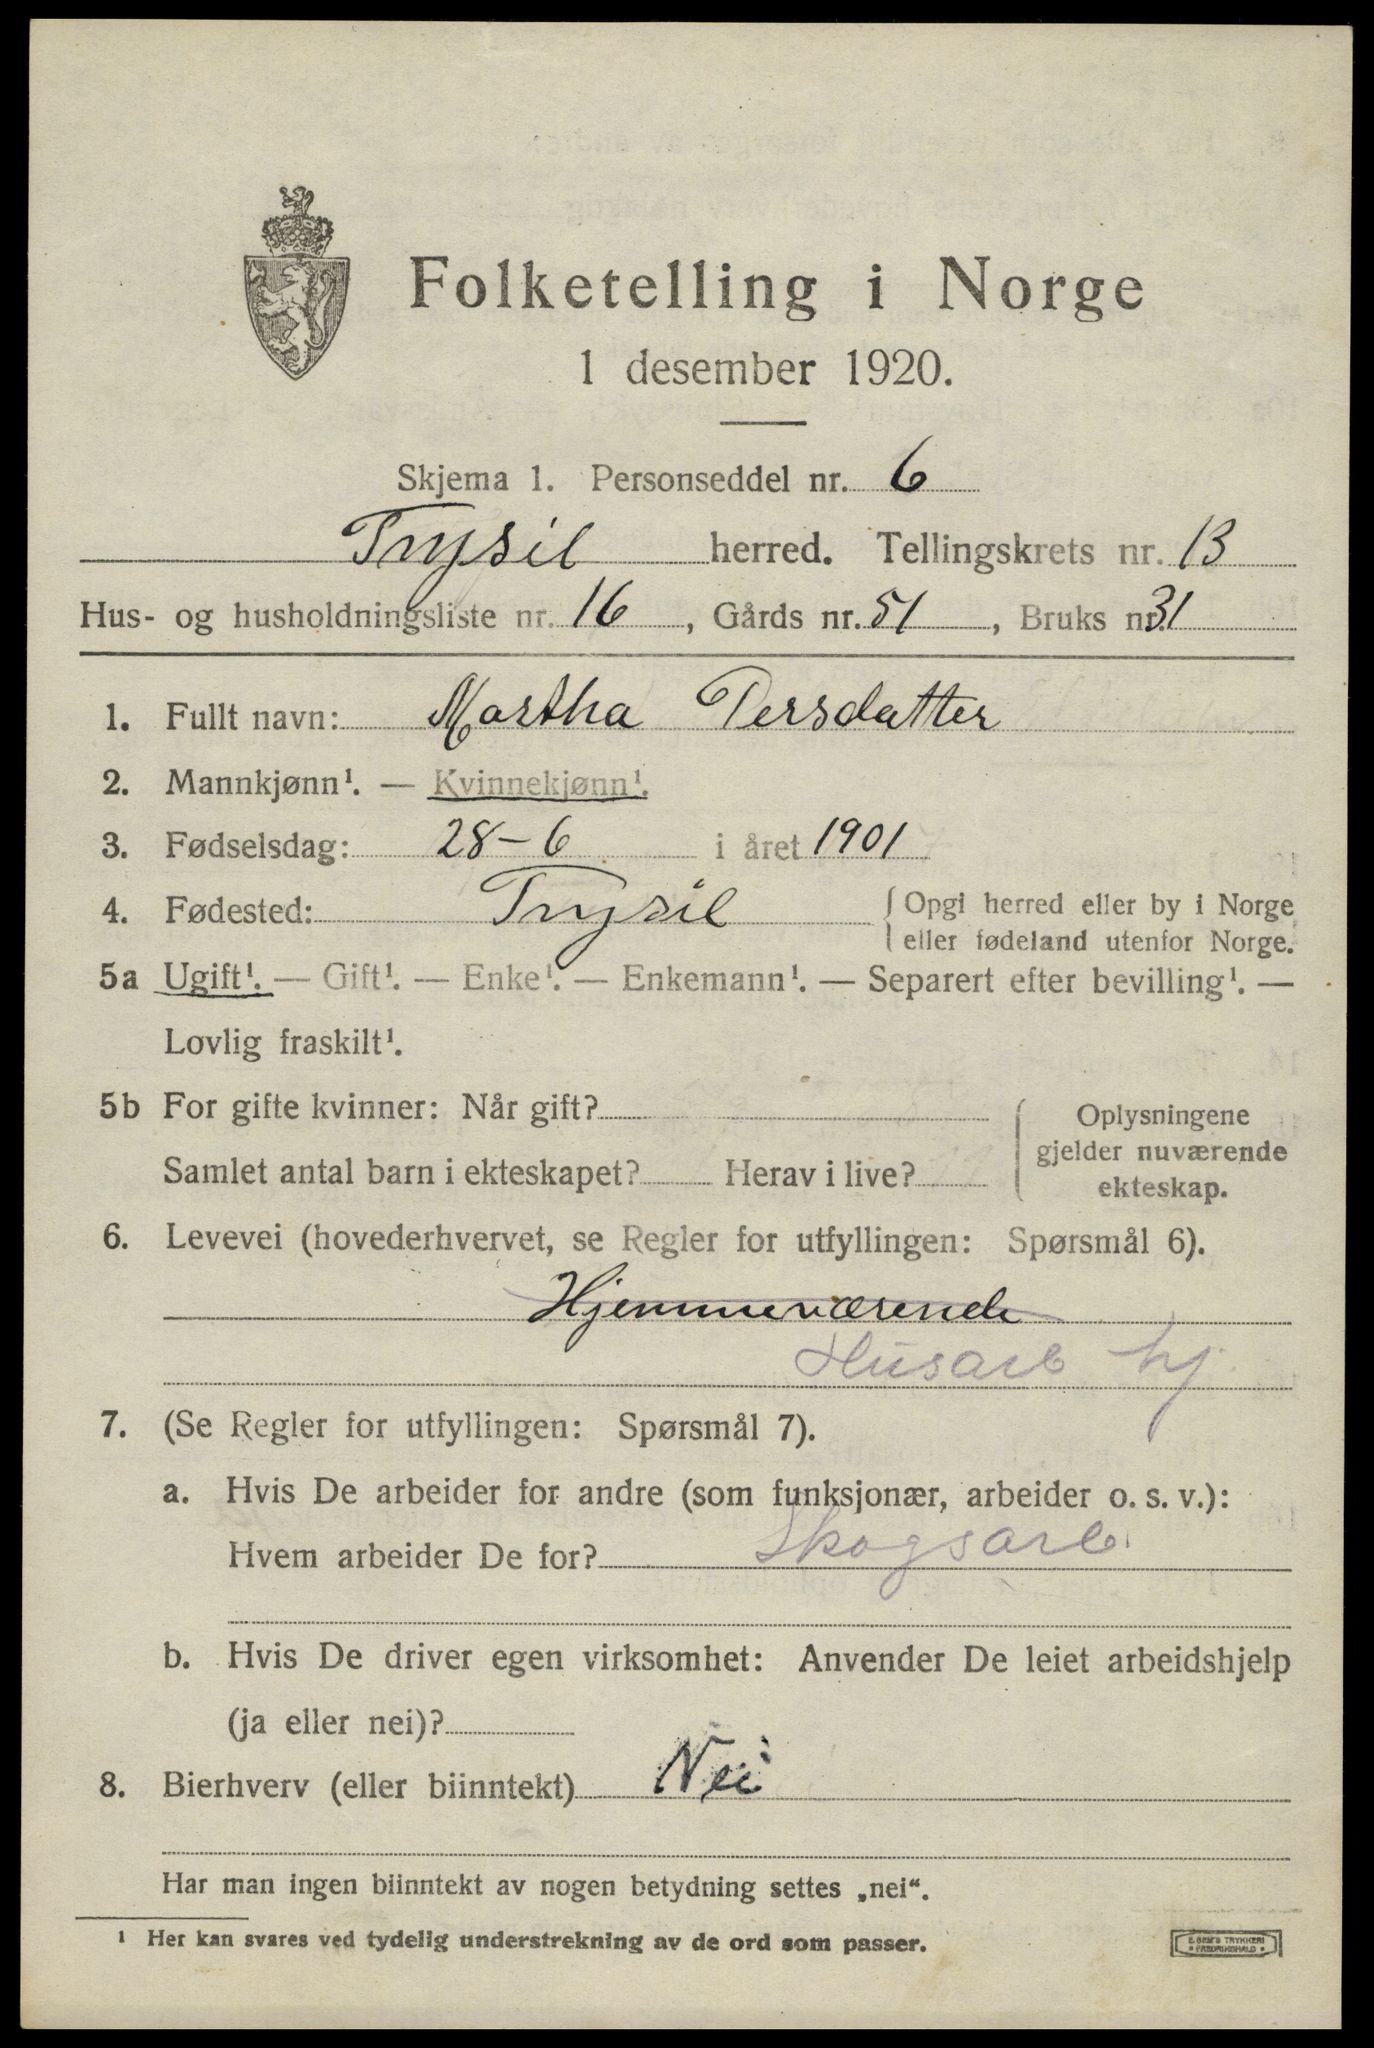 Folketelling i Norge
1 desember 1920.
Skjema 1. Personseddel nr. 6
Trysil herred. Tellingskrets nr. 13
Hus- og husholdningsliste nr. 16, Gårds nr. 51, Bruks nr. 31
1. Fullt navn: Martha Persdatter
2. Mannkjønn¹. — Kvinnekjønn¹.
3. Fødselsdag: 28-6 i året 1901
4. Fødested: Trysil { Opgi herred eller by i Norge
eller fødeland utenfor Norge.
5a Ugift¹. — Gift¹. — Enke¹. — Enkemann¹. — Separert efter bevilling¹. —
Lovlig fraskilt¹.
5b For gifte kvinner: Når gift?
Samlet antal barn i ekteskapet? Herav i live?
{ Oplysningene
gjelder nuværende
ekteskap.
6. Levevei (hovederhvervet, se Regler for utfyllingen: Spørsmål 6).
Hjemmeværende
Husarb hj.
7. (Se Regler for utfyllingen: Spørsmål 7).
a. Hvis De arbeider for andre (som funksjonær, arbeider o. s. v.):
Hvem arbeider De for? Skogsarb.
b. Hvis De driver egen virksomhet: Anvender De leiet arbeidshjelp
(ja eller nei)?
8. Bierhverv (eller biinntekt) Nei
Har man ingen biinntekt av nogen betydning settes „nei“.
¹ Her kan svares ved tydelig understrekning av de ord som passer.
E. SEM'S TRYKKERI
• FREDRIKSHALD •